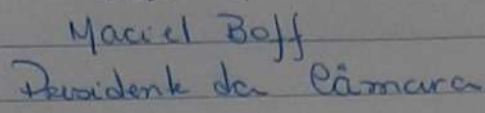 Maciel Boff
Presidente da Câmara